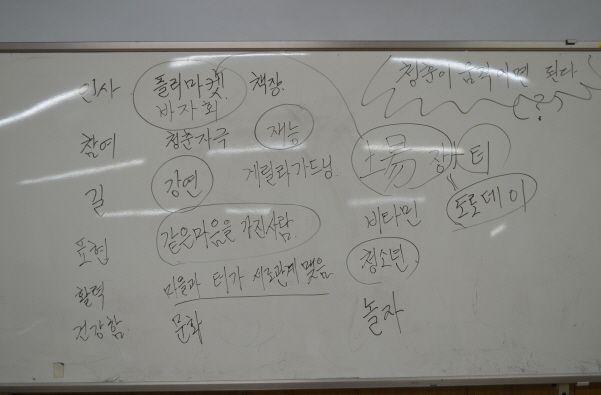 인사 플리마켓 책장
바자회
청춘이 움직이면 된다
(?)
참여 청춘자극 재능
場 장터
길 강연 게릴라가드닝
도로데이
표현 같은마음을 가진사람 비타민
청소년
활력 마을과 터가 서로관계맺음
건강함 문화 놀자